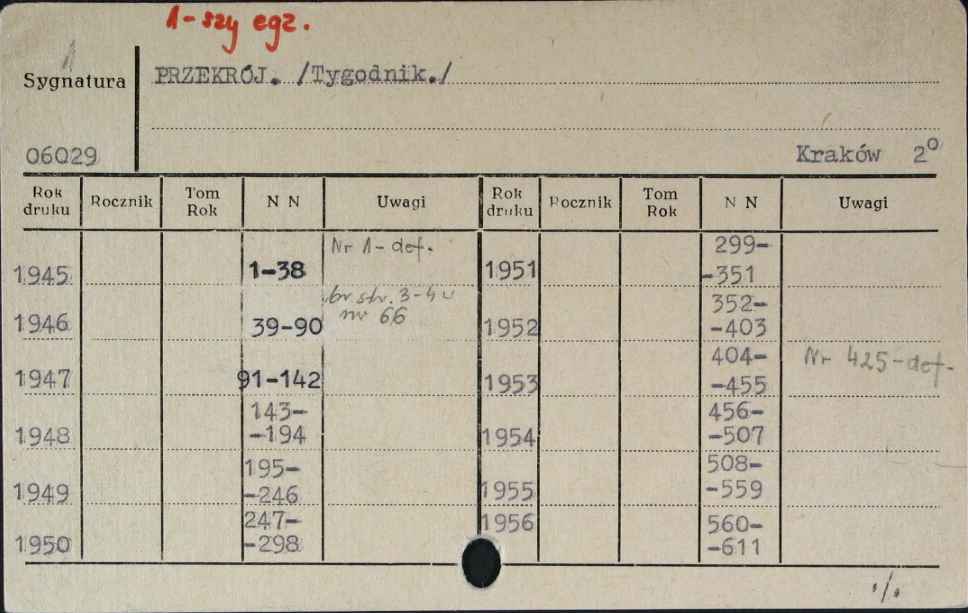 1-szy egz.
Sygnatura PRZEKRÓJ. /Tygodnik./
06029 Kraków 2o
Rok druku Rocznik Tom Rok N N Uwagi Rok druku Rocznik Tom Rok N N Uwagi
1945 1-38 Nr 1-def. 1951 299-
-351
1946 39-90 br. str. 3-4 w 1952 352-
nr 66 -403
1947 91-142 1953 404- Nr 425-def.
-455
1948 143- 1954 456-
-194 -507
1949 195- 1955 508-
-246 -559
1950 247- 1956 560-
-298 -611
./.